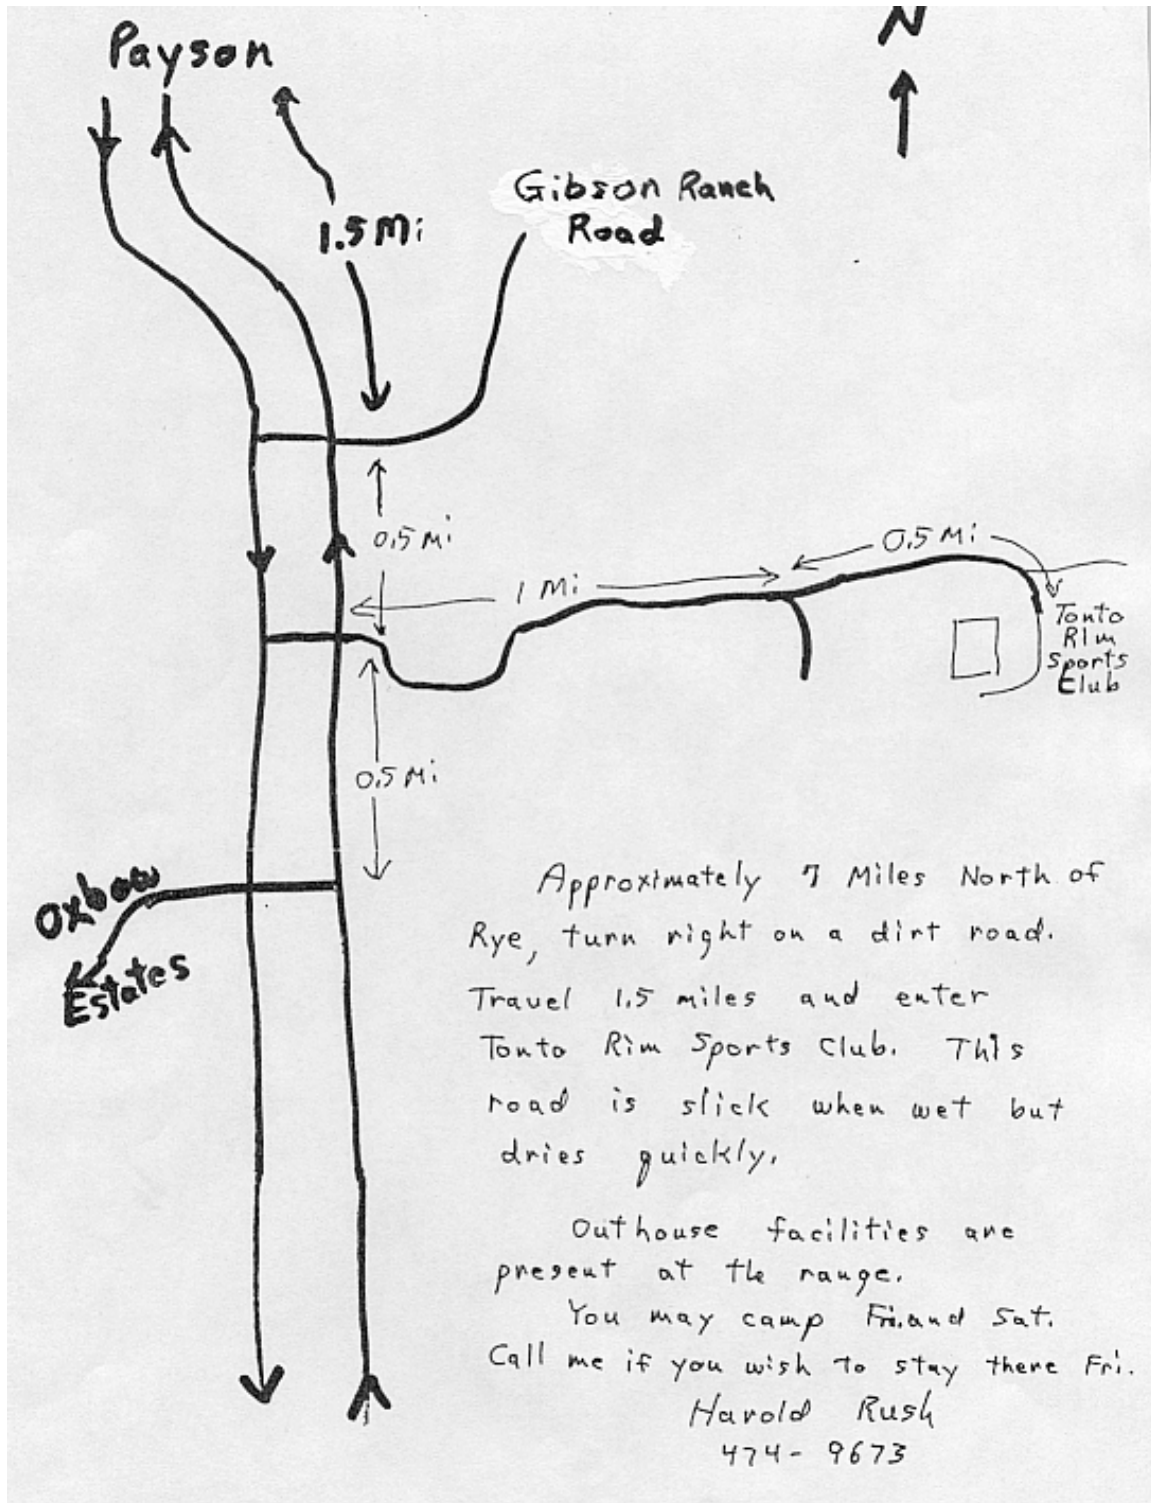 N
Payson
1.5 Mi
Gibson Ranch
Road
0.5 Mi
0.5 Mi
1 Mi
Tonto
Rim
Sports
Club
0.5 Mi
Oxbow
Estates
Approximately 7 Miles North of
Rye, turn right on a dirt road.
Travel 1.5 miles and enter
Tonto Rim Sports Club. This
road is slick when wet but
dries quickly.
Outhouse facilities are
present at the range.
You may camp Fri. and Sat.
Call me if you wish to stay there Fri.
Harold Rush
474-9673